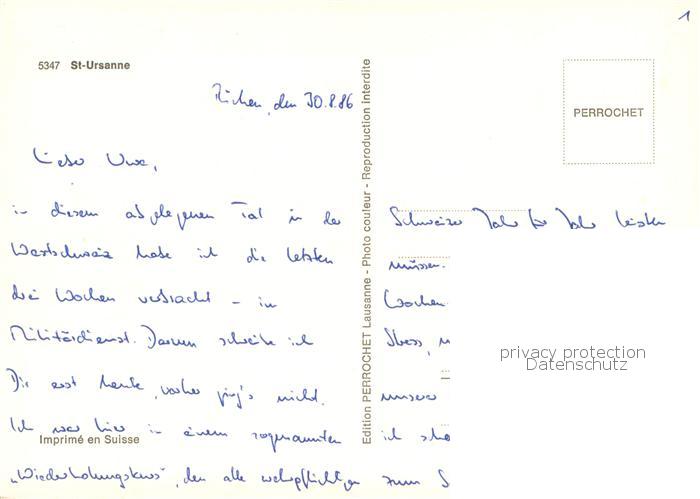 1
5347 St-Ursanne
Zürichen, den 30.8.86
PERROCHET
Lieber Uwe,
in diesem abgelegenen Tal in der
Westschweiz habe ich die letzten
drei Wochen verbracht - im
Militärdienst. Darum schreibe ich
Dir erst heute, vorher ging's nicht.
Ich war hier in einem sogenannten
Imprimé en Suisse
„Wiederholungskurs", den alle wehrpflichtigen
Edition PERROCHET Lausanne - Photo couleur - Reproduction interdite
Schweizer Jahr für Jahr leisten
müssen.
Wochen
Stress,
unserer
ich
zum S
privacy protection
Datenschutz